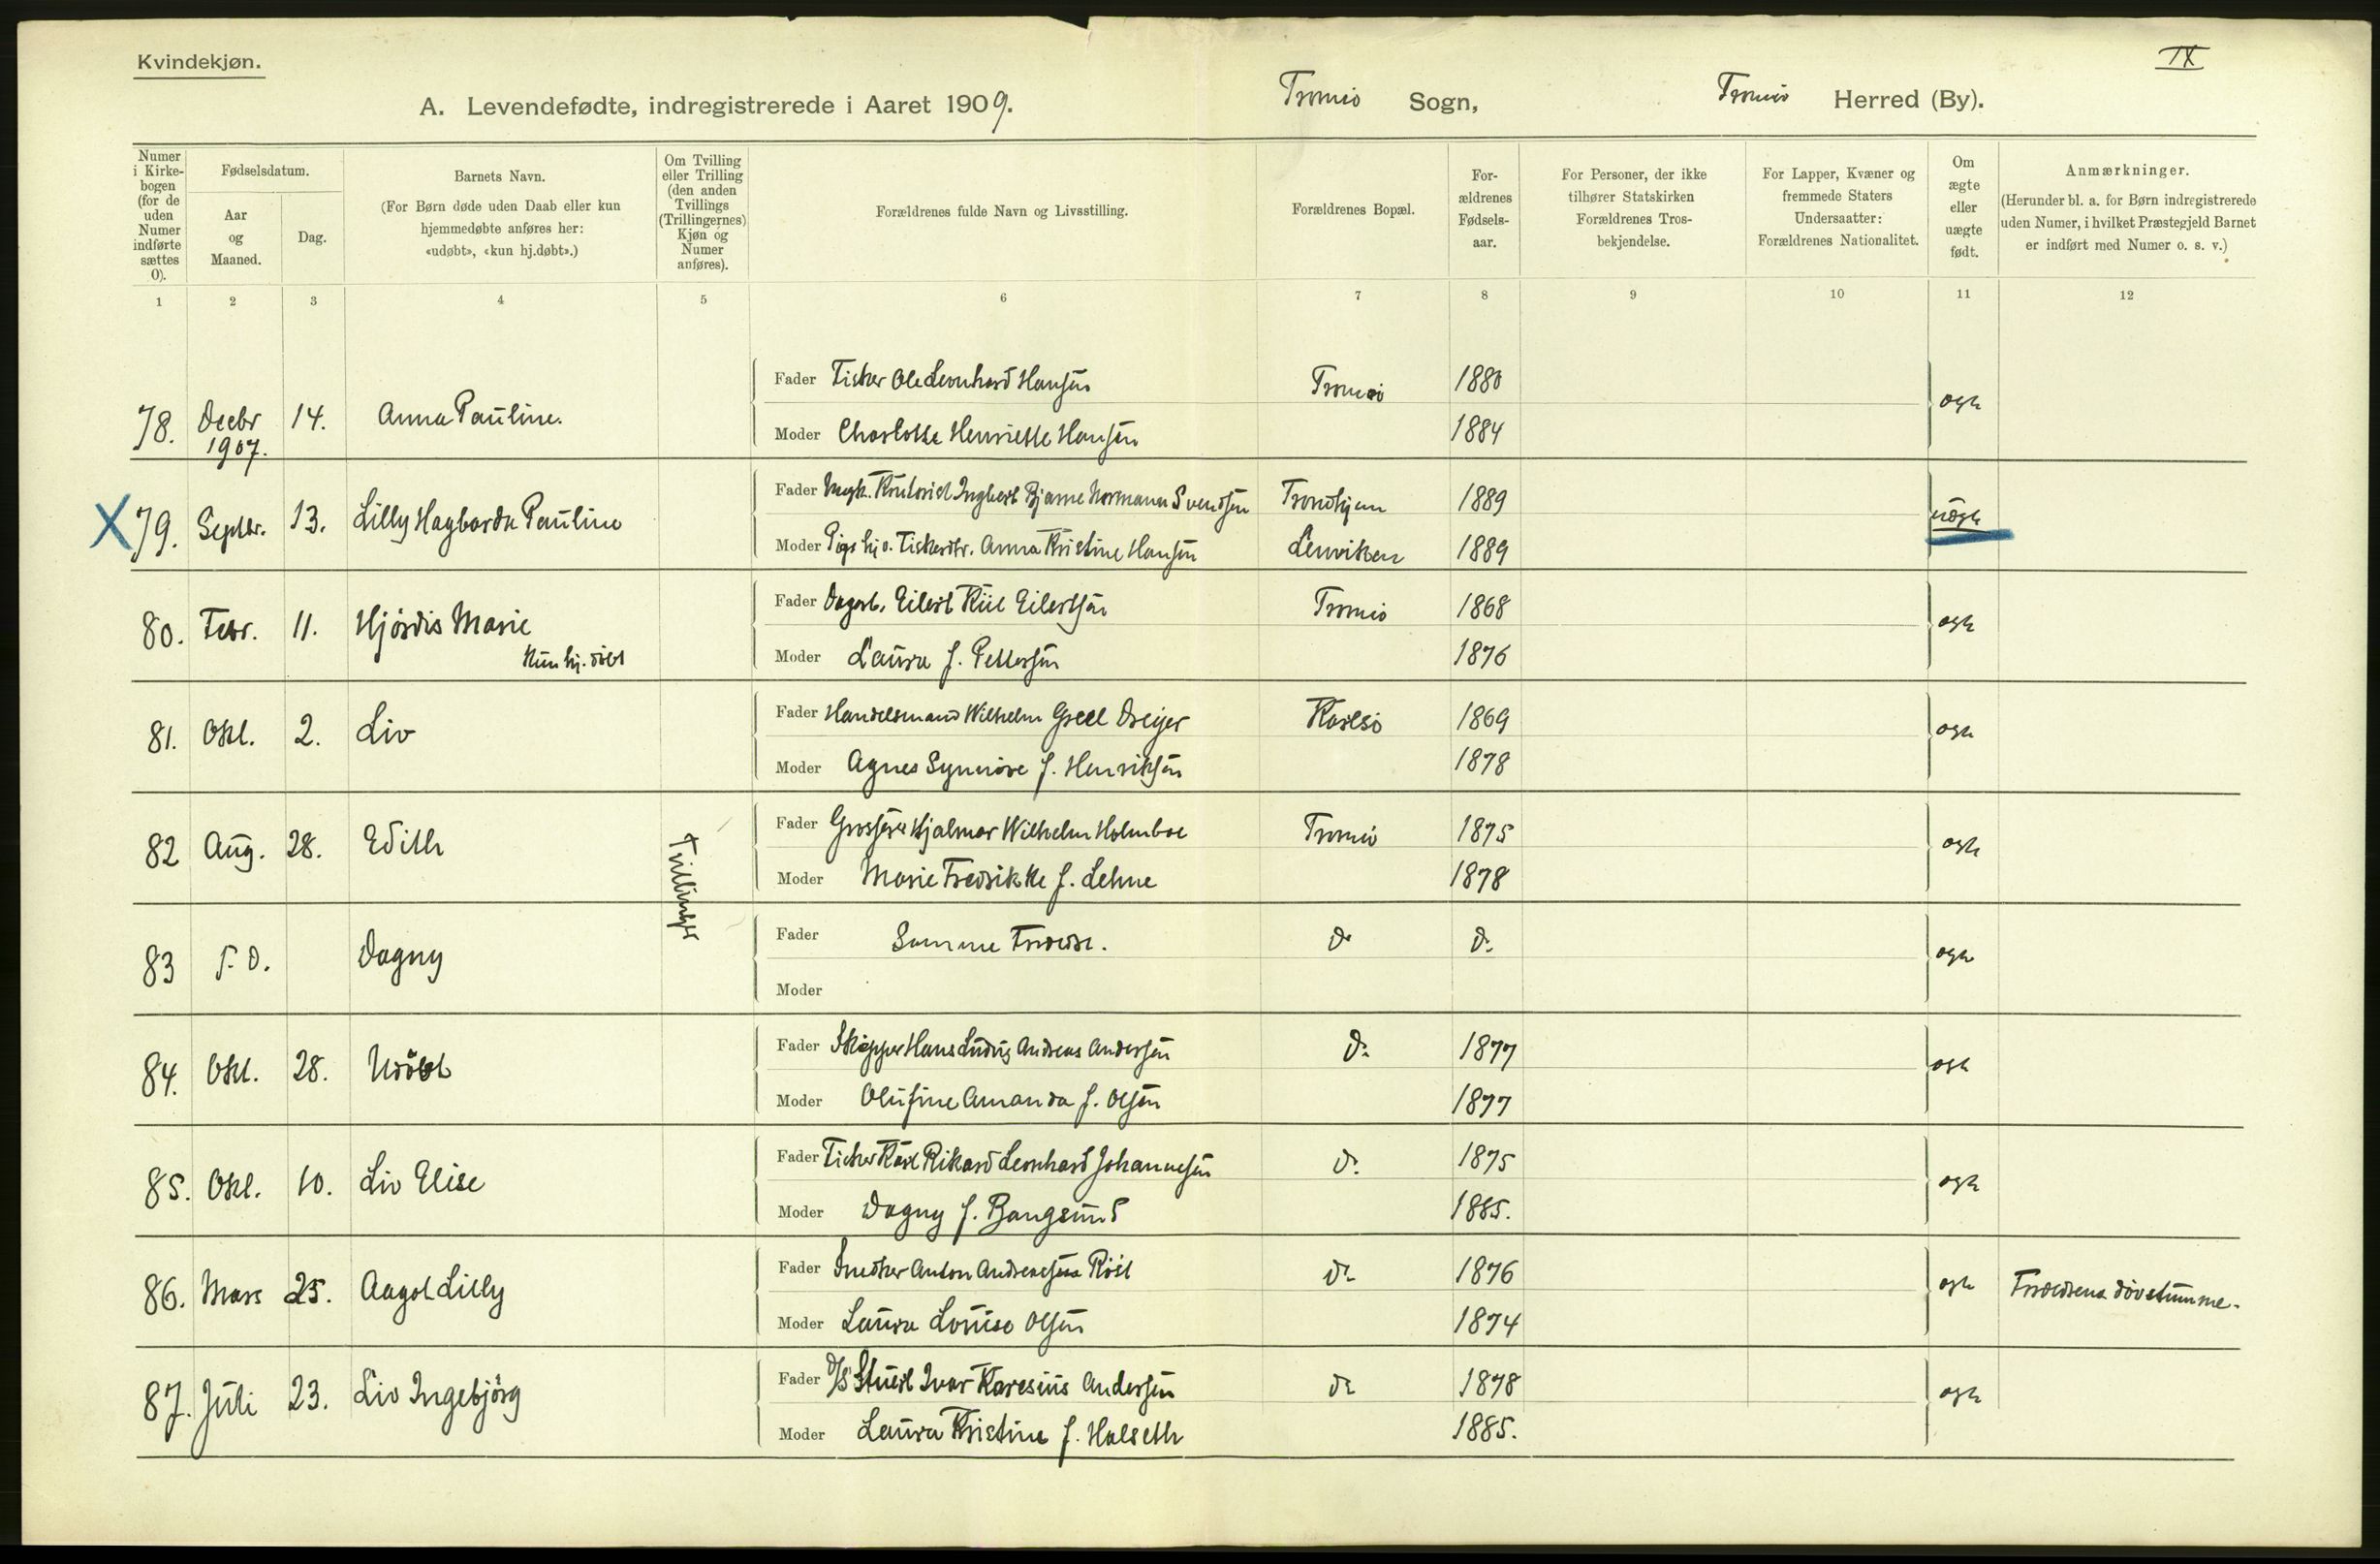 Kvindekjøn.
IX
A. Levendefødte, indregistrerede i Aaret 1909.
Tromsø Sogn,
Tromsø Herred (By).
Numer i Kirkebogen (for de uden Numer indførte sættes 0).
Fødselsdatum.
Aar og Maaned.
Dag.
Barnets Navn.
(For Børn døde uden Daab eller kun hjemmedøbte anføres her: «udøbt», «kun hj.døbt».)
Om Tvilling eller Trilling (den anden Tvillings (Trillingernes) Kjøn og Numer anføres).
Forældrenes fulde Navn og Livsstilling.
Forældrenes Bopæl.
Forældrenes Fødselsaar.
For Personer, der ikke tilhører Statskirken Forældrenes Trosbekjendelse.
For Lapper, Kvæner og fremmede Staters Undersaatter: Forældrenes Nationalitet.
Om ægte eller uægte født.
Anmærkninger.
(Herunder bl. a. for Børn indregistrerede uden Numer, i hvilket Præstegjeld Barnet er indført med Numer o. s. v.)
1 2 3 4 5 6 7 8 9 10 11 12
78. Decbr 1907. 14. Anna Pauline.
Fader Fisker Ole Leonhard Hansen Tromsø 1880 ægte
Moder Charlotte Henriette Hansen 1884
X 79. Septbr. 13. Lilly Hagbarda Pauline
Fader Kontorist Ingbert Bjarne Normann Svendsen Trondhjem 1889 uægte
Moder Pige hj. v. Fiskerdtr. Anna Kristine Hansen Lenviken 1889
80. Febr. 11. Hjørdis Marie
Kun hj. døbt
Fader Dagarb. Eilert Kiil Eilertsen Tromsø 1868 ægte
Moder Laura f. Pettersen 1876
81. Okt. 2. Liv
Fader Handelsmand Wilhelm Greel Dreyer Karlsø 1869 ægte
Moder Agnes Synnøve f. Henriksen 1878
82 Aug. 28. Edith Tvillinger
Fader Grosserer Hjalmar Wilhelm Holmboe Tromsø 1875 ægte
Moder Marie Fredrikke f. Lehne 1878
83 s. D. Dagny
Fader Samme Forældre. do do ægte
Moder
84. Okt. 28. Udøbt
Fader Skipper Hans Ludvig Andreas Andersen do 1877 ægte
Moder Olufine Amanda f. Olsen 1877
85. Okt. 10. Liv Elise
Fader Fisker Karl Rikard Leonhard Johannesen do 1875 ægte
Moder Dagny f. Bangsund 1885.
86. Mars 25. Aagot Lilly
Fader Snedker Anton Andreassen Röst do 1876 ægte Forældrene døvstumme.
Moder Laura Lovise Olsen 1874
87. Juli 23. Liv Ingebjörg
Fader D/S Stuert Ivar Karesius Andersen do 1878 ægte
Moder Laura Kristine f. Halseth 1885.